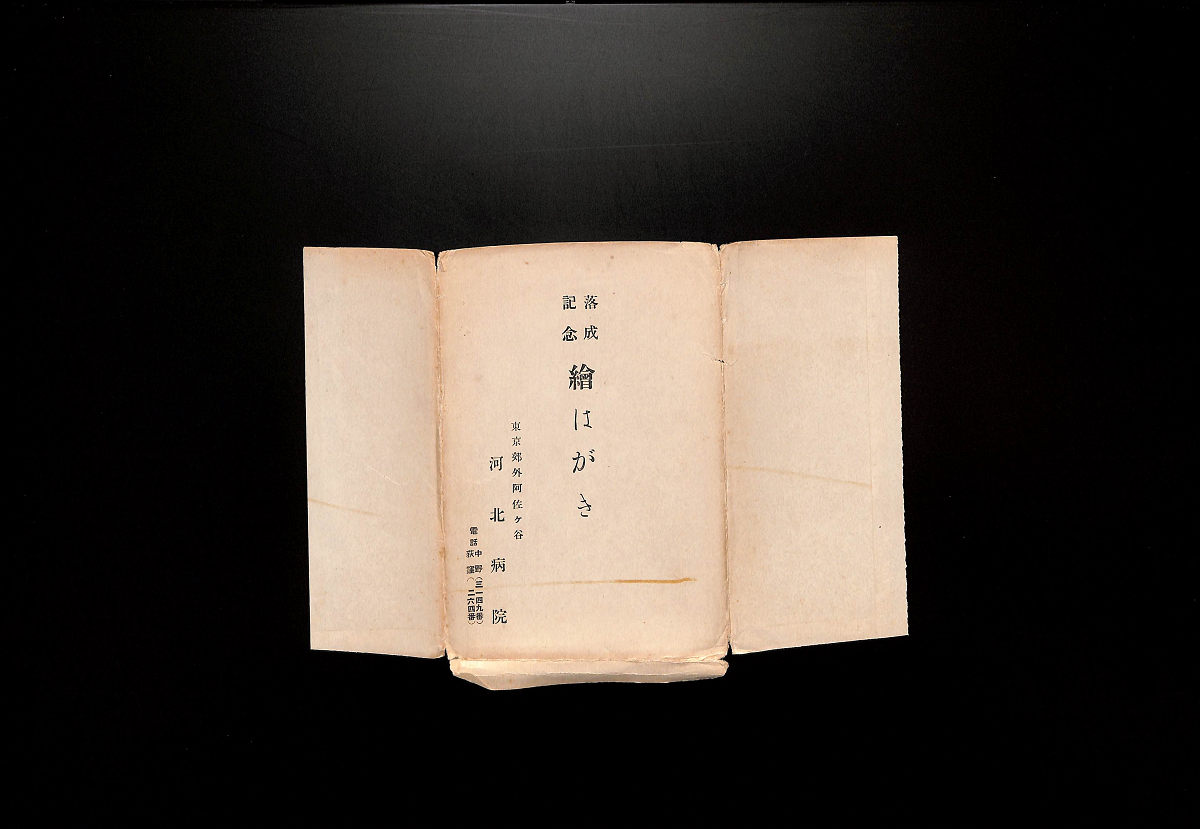 落成
記念
繪はがき
東京郊外阿佐ヶ谷
河北病院
電話
中野(三一四九番)
荻窪(二六四番)